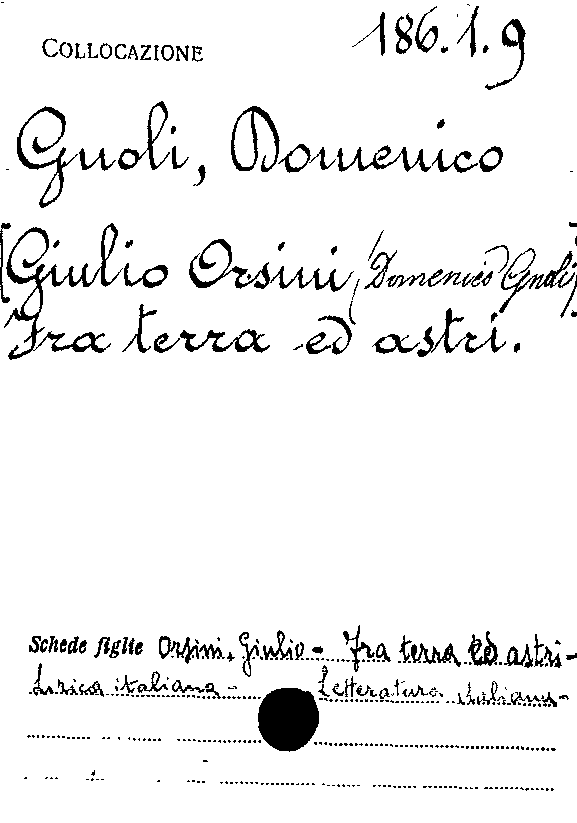 COLLOCAZIONE 186.1.9
Gnoli, Domenico
[Giulio Orsini (Domenico Gnoli)]
Fra terra ed astri.
Schede figlie Orsini, Giulio - Fra terra ed astri -
Lirica italiana - Letteratura italiana -